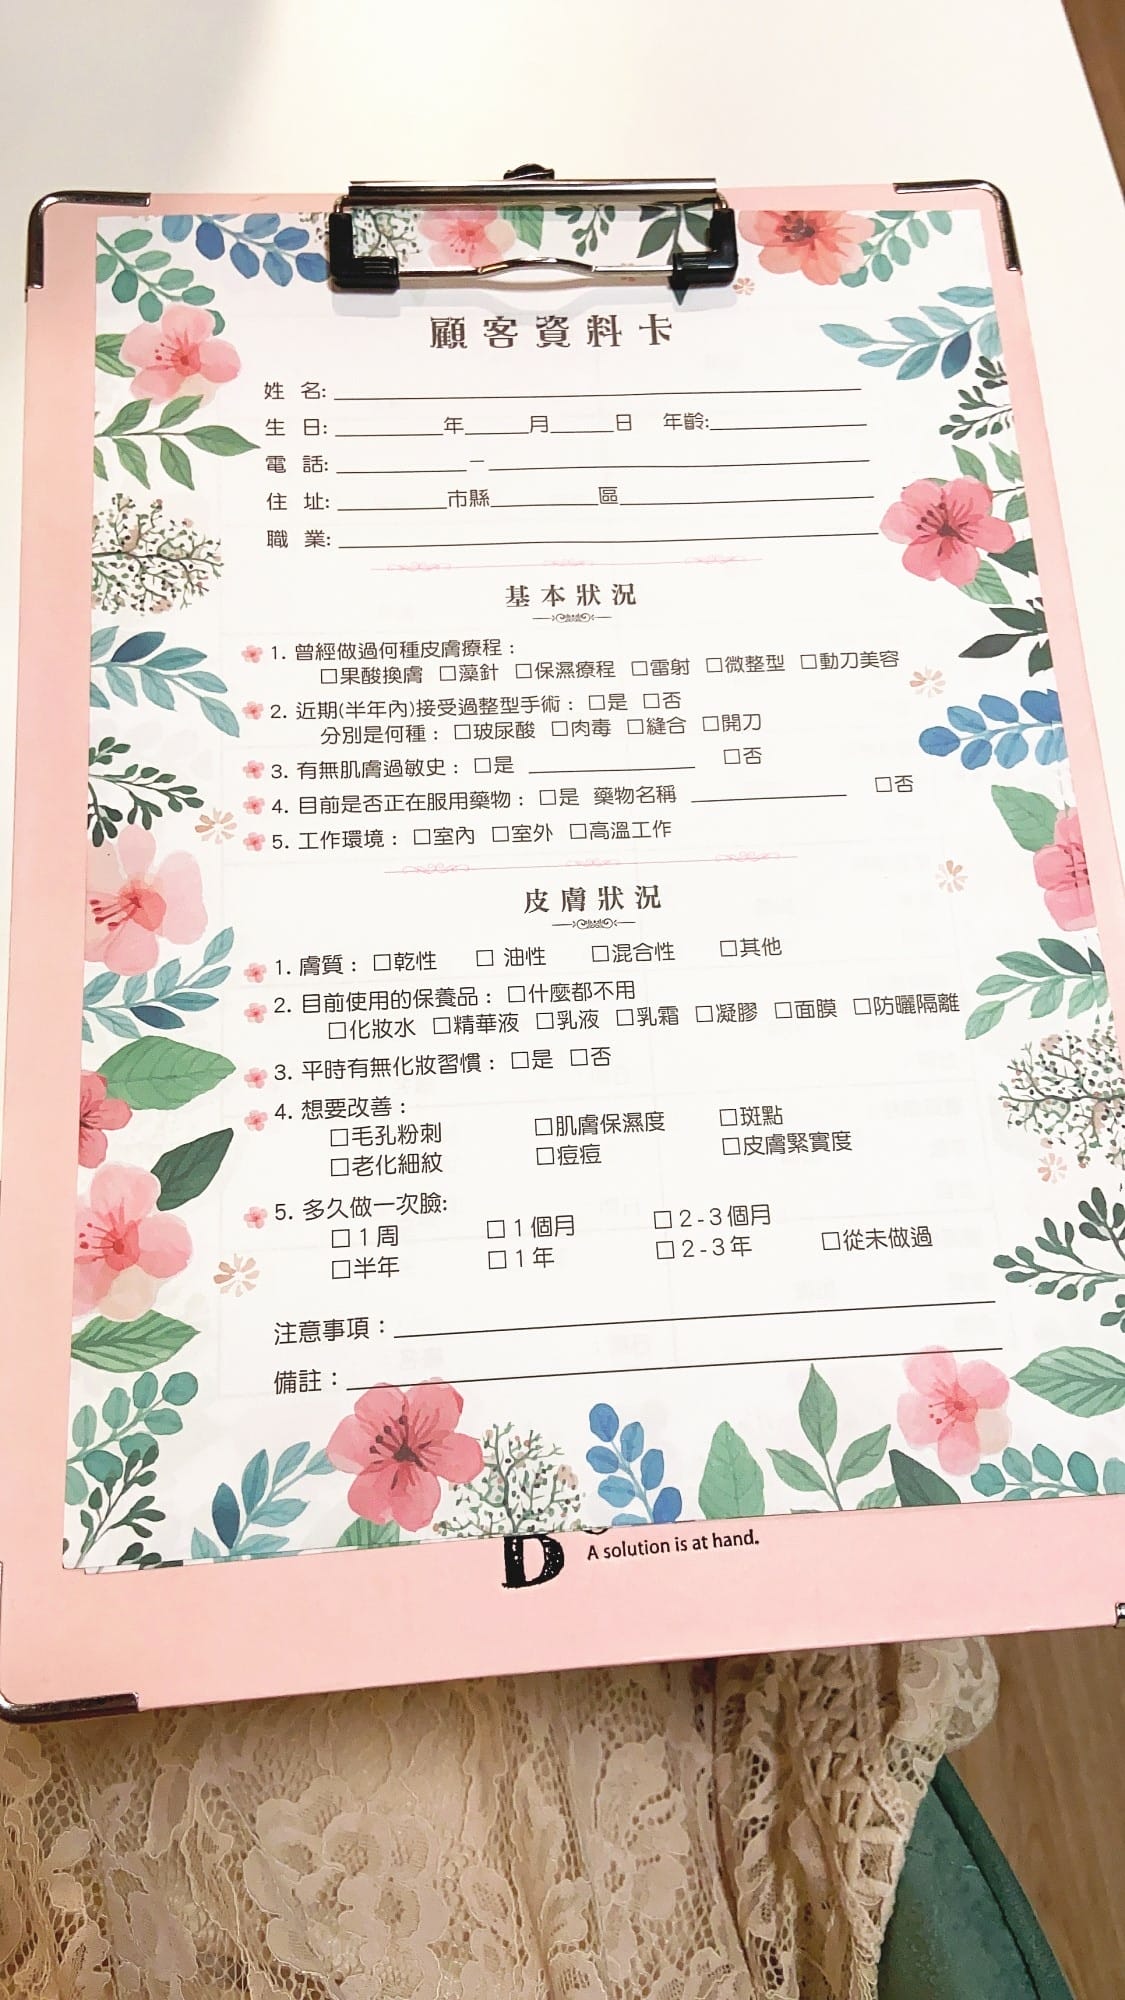 顧客資料卡
姓 名:
生 日:____年____月____日 年齡:
電 話:____－____
住 址:____市縣____區____
職 業:
基本狀況
1. 曾經做過何種皮膚療程：
□果酸換膚 □藻針 □保濕療程 □雷射 □微整型 □動刀美容
2. 近期(半年內)接受過整型手術：□是 □否
分別是何種：□玻尿酸 □肉毒 □縫合 □開刀
3. 有無肌膚過敏史：□是 ________ □否
4. 目前是否正在服用藥物：□是 藥物名稱 ________ □否
5. 工作環境：□室內 □室外 □高溫工作
皮膚狀況
1. 膚質：□乾性 □ 油性 □混合性 □其他
2. 目前使用的保養品：□什麼都不用
□化妝水 □精華液 □乳液 □乳霜 □凝膠 □面膜 □防曬隔離
3. 平時有無化妝習慣：□是 □否
4. 想要改善：
□毛孔粉刺 □肌膚保濕度 □斑點
□老化細紋 □痘痘 □皮膚緊實度
5. 多久做一次臉:
□1周 □1個月 □2-3個月
□半年 □1年 □2-3年 □從未做過
注意事項：
備註：
A solution is at hand.